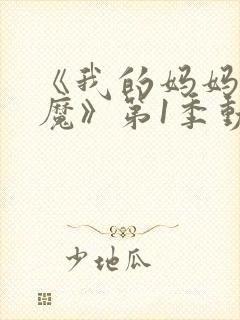 《我的妈妈
魔》第1季動
少地瓜